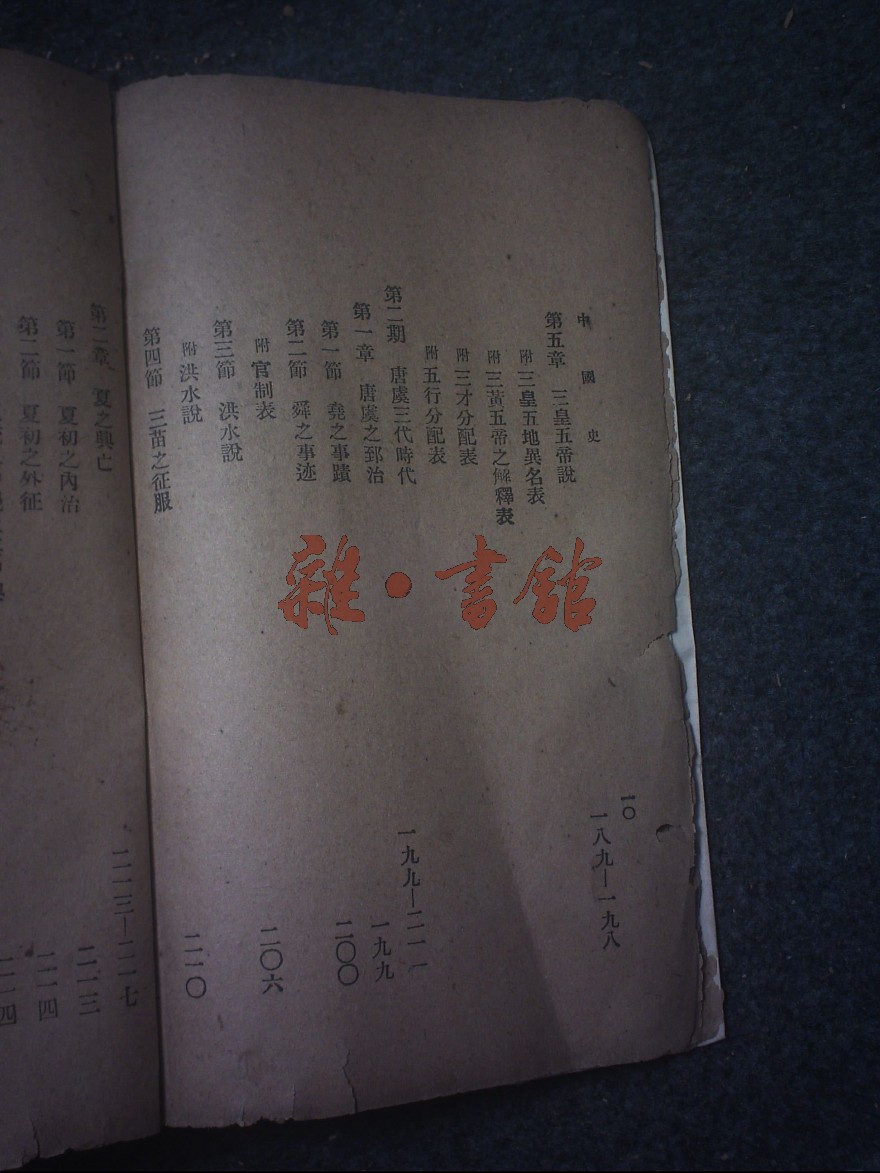 中國史
一〇
第五章 三皇五帝說 一八九—一九八
附 三皇五地異名表
附 三黃五帝之解釋表
附 三才分配表
附 五行分配表
第二期 唐虞三代時代
第一章 唐虞之郅治 一九九—二一一
第一節 堯之事蹟 一九九
第二節 舜之事迹 二〇〇
附 官制表
第三節 洪水說 二〇六
附 洪水說
第四節 三苗之征服 二一〇
第二章 夏之興亡 二一三—二一七
第一節 夏初之內治 二一三
第二節 夏初之外征 二一四
二一四
雜·書館